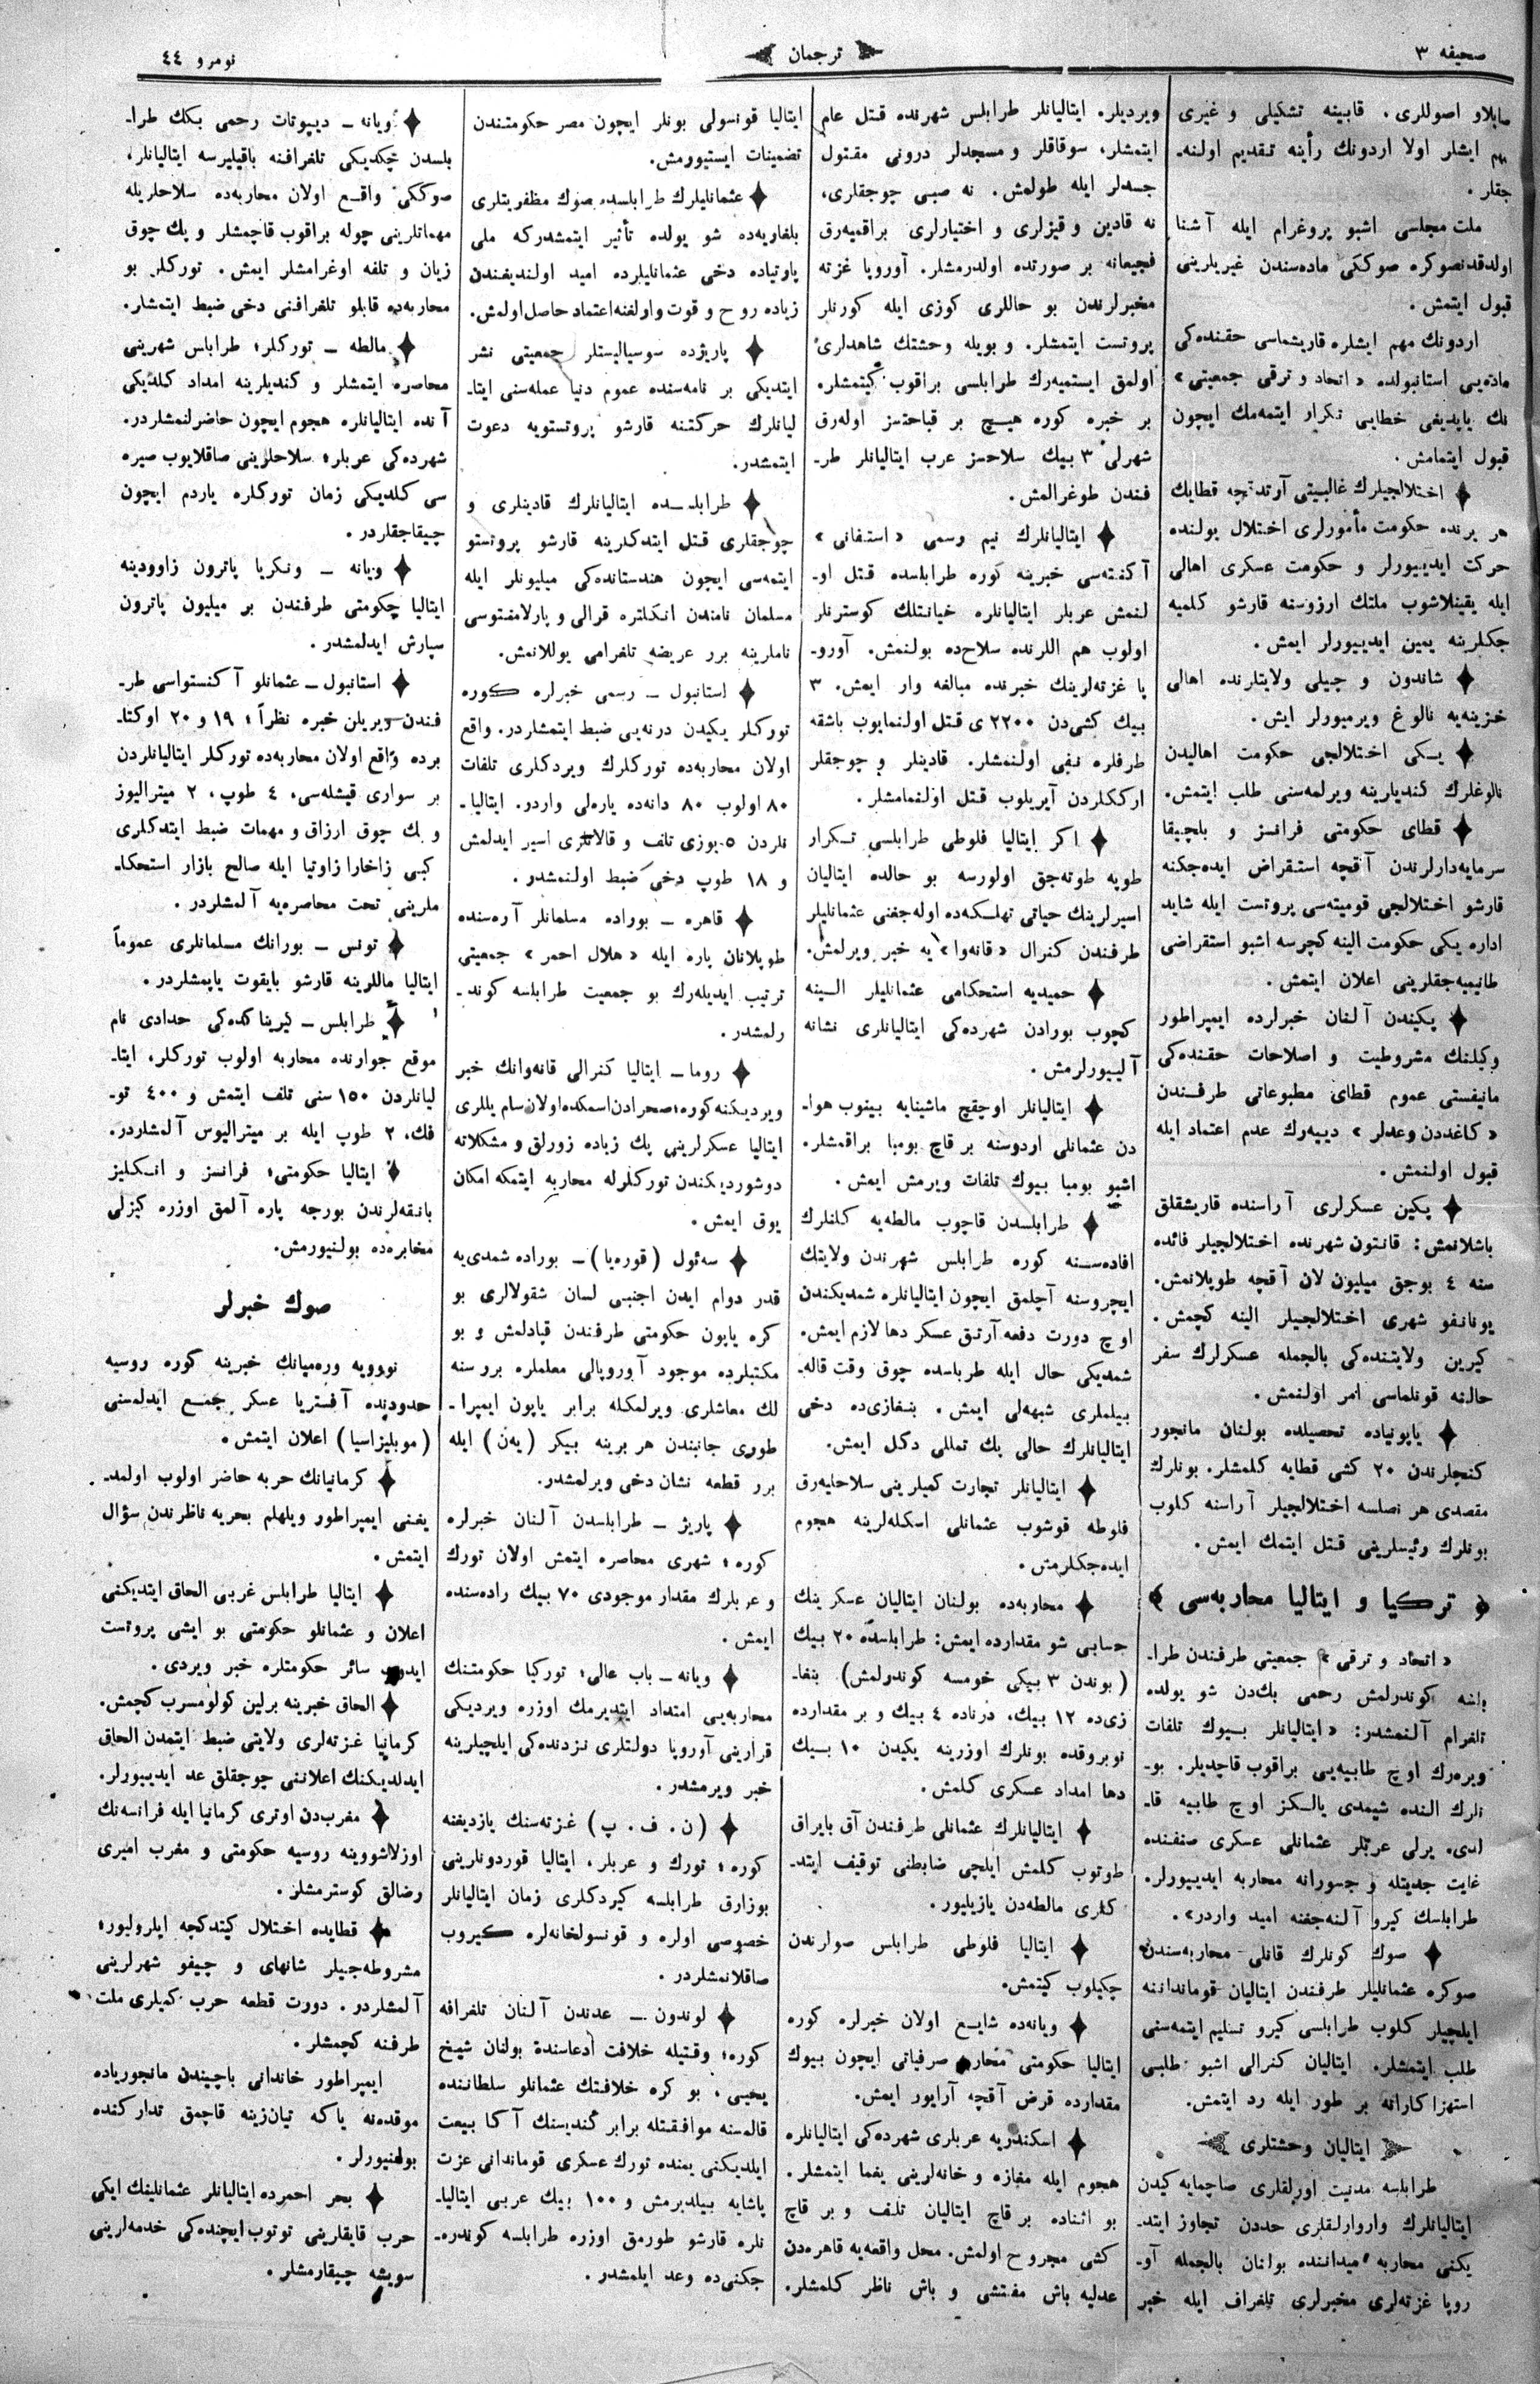 صحیفه ۳
ترجمان
نومرو ٤٤
صایلاو اصوللری. قابینه تشکیلی و غیری
مهم ایشلر اولا اردونك رأینه تقدیم اولنه‌ـ
جقلر.
ملت مجلسی اشبو پروغرام ایله آشنا
اولدقدنصوکره صوککی ماده‌سندن غیریلرینی
قبول ایتمش.
اردونك مهم ایشلره قاریشماسی حقنده‌کی
ماده‌یی استانبولده «اتحاد و ترقی جمعیتی»
نك یاپدیغی خطایی تکرار ایتمه‌مك ایچون
قبول ایتمامش.
اختلالجیلرك غالبیتی آرتدقچه قطایك
هر یرنده حکومت مأمورلری اختلال یولنده
حرکت ایدییورلر و حکومت عسکری اهالی
ایله یقینلاشوب ملتك ارزوسنه قارشو کلمیه
جکلرینه یمین ایدییورلر ایمش.
شاندون و جیلی ولایتلرنده اهالی
خزینه‌یه نالوغ ویرمیورلر ایش.
یـکی اختلالجی حکومت اهالیدن
نالوغلرك کندیلرینه ویرلمه‌سنی طلب ایتمش.
قطای حکومتی فرانسز و بلچیقا
سرمایه‌دارلرندن آقچه استقراض ایده‌جکنه
قارشو اختلالجی قومیته‌سی پروتست ایله شاید
اداره یکی حکومت الینه کچرسه اشبو استقراضی
طانیمیه‌جقلرینی اعلان ایتمش.
پکیندن آلنان خبرلرده ایمپراطور
وکیلنك مشروطیت و اصلاحات حقنده‌کی
مانیفستی عموم قطای مطبوعاتی طرفـندن
«کاغددن وعدلر» دییه‌رك عدم اعتماد ایله
قبول اولنمش.
پکین عسکرلری آراسنده قاریشقلق
باشلانمش: قانتون شهرنده اختلالجیلر فائده
سنه ٤ بوجق میلیون لان آقچه طوپلانمش.
یونانفو شهری اختلالجیلر الینه کچمش.
کیرین ولایتنده‌کی بالجمله عسکرلرك سفر
حالنه قونلماسی امر اولنمش.
یاپونیاده تحصیلده بولنان مانجور
کنجلرندن ۲۰ کشی قطایه کلمشلر. بونلرك
مقصدی هر نصلسه اختلالجیلر آراسنه کلوب
بونلرك رئیسلرینی قتل ایتمك ایمش.
﴿ ترکیا و ایتالیا محاربه‌سی ﴾
«اتحاد و ترقی» جمعیتی طرفندن طرا‌ـ
بلسه کوندرلمش رحمی بك‌دن شو یولده
تلغرام آلنمشدر: «ایتالیانلر بـیوك تلفات
ویره‌رك اوچ طابیه‌یی براقوب قاچدیلر. بو‌ـ
نلرك النده شیمدی یالـکز اوچ طابیه قا‌ـ
لدی. یرلی عربلر عثمانلی عسکری صنفنده
غایت جدیتله و جسورانه محاربه ایدییورلر.
طرابلسك کیرو آلنه‌جغنه امید واردر».
صوك کونلرك قانلی محاربه‌سندن
صوکره عثمانلیلر طرفندن ایتالیان قوماندا‌ننه
ایلچیلر کلوب طرابلسی کیرو تسلیم ایتمه‌سنی
طلب ایتمشلر. ایتالیان کنرالی اشبو طلبی
استهزا کارانه بر طور ایله رد ایتمش.
ایتالیان وحشتلری
طرابلسه مدنیت اورلقلری صاچمایه کیدن
ایتالیانلرك واروارلقلری حددن تجاوز ایتد‌ـ
یکنی محاربه میداننده بولنان بالجمله آو‌ـ
روپا غزته‌لری مخبرلری تلغراف ایله خبر
ویردیلر. ایتالیانلر طرابلس شهرنده قتل عام
ایتمشلر، سوقاقلر و مسجدلر درونی مقتول
جسدلر ایله طولمش. نه صبی چوجقلری،
نه قادین و قیزلری و اختیارلری براقمیه‌رق
فجیعانه بر صورتده اولدرمشلر. آوروپا غزته
مخبرلرندن بو حاللری کوزی ایله کورنلر
پروتست ایتمشلر. و بویله وحشتك شاهدلری
اولمق ایستمیه‌رك طرابلسی براقوب کیتمشلر.
بر خبره کوره هیـچ بر قباحتسز اوله‌رق
شهرلی ۳ بیك سلاحسز عرب ایتالیانلر طر‌ـ
فندن طوغرالمش.
ایتالیانلرك نیم رسمی «استفانی»
آکنته‌سی خبرینه کوره طرابلسده قتل او‌ـ
لنمش عربلر ایتالیانلره خیانتلك کوسترنلر
اولوب هم اللرنده سلاح‌ده بولنمش. آورو‌ـ
پا غزته‌لرینك خبرنده مبالغه وار ایمش. ۳
بیك کشی‌دن ۲۲۰۰ ی قتل اولنمایوب باشقه
طرفلره نفی اولنمشلر. قادینلر و چوجقلر
ارککلردن آیریلوب قتل اولنمامشلر.
اکر ایتالیا فلوطی طرابلسی تـکرار
طوپه طوته‌جق اولورسه بو حالده ایتالیان
اسیرلرینك حیاتی تهلـکه‌ده اوله‌جغنی عثمانلیلر
طرفندن کنرال «قانه‌وا»یه خبر ویرلمش.
حمیدیه استحکامی عثمانلیلر الـینه
کچوب بورادن شهرده‌کی ایتالیانلری نشانه
آلییورلرمش.
ایتالیانلر اوچقچ ماشینایه بینوب هوا‌ـ
دن عثمانلی اردوسنه بر قاچ بومبا براقمشلر.
اشبو بومبا بیوك تلفات ویرمش ایمش.
طرابلسدن قاچوب مالطه‌یه کلنلرك
افاده‌سـنه کوره طرابلس شهرندن ولایتك
ایچروسنه آچلمق ایچون ایتالیانلره شمدیکندن
اوچ دورت دفعه آرتق عسکر دها لازم ایمش.
شمدیکی حال ایله طربلسده چوق وقت قاله‌ـ
بیلملری شبهه‌لی ایمش. بنغازی‌ده دخی
ایتالیانلرك حالی پك تمللی دکل ایمش.
ایتالیانلر تجارت کمیلرینی سلاحلیه‌رق
فلوطه قوشوب عثمانلی اسکله‌لرینه هجوم
ایده‌جکلرمش.
محاربه‌ده بولنان ایتالیان عسکرینك
حسابی شو مقدارده ایمش: طرابلسده ۲۰ بیك
(بوندن ۳ بیکی خومسه کوندرلمش) بنغا‌ـ
زی‌ده ۱۲ بیك، درناده ٤ بیك و بر مقدارده
توبروقده بونلرك اوزرینه یکیدن ۱۰ بـیك
دها امداد عسکری کلمش.
ایتالیانلرك عثمانلی طرفندن آق بایراق
طوتوب کلمش ایلچی ضابطنی توقیف ایتد‌ـ
کلری مالطه‌دن یازیلیور.
ایتالیا فلوطی طرابلس صولرندن
چکیلوب کیتمش.
ویانه‌ده شایـع اولان خبرلره کوره
ایتالیا حکومتی محاربه صرفیاتی ایچون بیوك
مقدارده قرض آقچه آرایور ایمش.
اسکندریه عربلری شهرده‌کی ایتالیانلره
هجوم ایله مغازه و خانه‌لرینی یغما ایتمشلر.
بو اثناده بر قاچ ایتالیان تلف و بر قاچ
کشی مجروح اولمش. محل واقعه‌یه قاهره‌دن
عدلیه باش مفتشی و باش ناظر کلمشلر.
ایتالیا قونسولی بونلر ایچون مصر حکومتندن
تضمینات ایستیورمش.
عثمانلیلرك طرابلسده صوك مظفریتلری
بلغاریه‌ده شو یولده تأثیر ایتمشدرکه ملی
پارتیاده دخی عثمانلیلرده امید اولندیغندن
زیاده روح و قوت وارلغنه اعتماد حاصل اولمش.
پاریژده سوسیالیستلر جمعیتی نشر
ایتدیکی بر نامه‌سنده عموم دنیا عمله‌سنی ایتا‌ـ
لیانلرك حرکتنه قارشو پروتستویه دعوت
ایتمشدر.
طرابلـسده ایتالیانلرك قادینلری و
چوجقلری قتل ایتدکلرینه قارشو پروتستو
ایتمه‌سی ایچون هندستانده‌کی میلیونلر ایله
مسلمان نامندن انکلتره قرالی و پارلامنتوسی
ناملرینه برر عریضه تلغرامی یوللانمش.
استانبول ـ رسمی خبرلره کـوره
تورکلر یکیدن درنه‌یی ضبط ایتمشلردر. واقع
اولان محاربه‌ده تورکلرك ویردکلری تلفات
۸۰ اولوب ۸۰ دانه‌ده یاره‌لی واردر. ایتالیا‌ـ
نلردن ۵۰۰یوزی تلف و قالانلری اسیر ایدلمش
و ۱۸ طوپ دخی ضبط اولنمشدر.
قاهره ـ بوراده مسلمانلر آره‌سنده
طوپلانان پاره ایله «هلال احمر» جمعیتی
ترتیب ایدیله‌رك بو جمعیت طرابلسه کوند‌ـ
رلمشدر.
روما ـ ایتالیا کنرالی قانه‌وانك خبر
ویردیکنه کوره؛ صحرادن اسمکده اولان سام یللری
ایتالیا عسکرلرینی پك زیاده زورلق و مشکلاته
دوشوردیکندن تورکلرله محاربه ایتمکه امکان
یوق ایمش.
سه‌ئول (قوره‌یا) ـ بوراده شمدی‌یه
قدر دوام ایدن اجنبی لسان شقولالری بو
کره یاپون حکومتی طرفندن قپادلمش و بو
مکتبلرده موجود آوروپالی معلملره برر سنه
لك معاشلری ویرلمکله برابر یاپون ایمپرا‌ـ
طوری جانبندن هر برینه بیکر (یه‌ن) ایله
برر قطعه نشان دخی ویرلمشدر.
پاریژ ـ طرابلسدن آلنان خبرلره
کوره؛ شهری محاصره ایتمش اولان تورك
و عربلرك مقدار موجودی ۷۰ بیك راده‌سنده
ایمش.
ویانه ـ باب عالی؛ تورکیا حکومتنك
محاربه‌یی امتداد ایتدیرمك اوزره ویردیکی
قرارینی آوروپا دولتلری نزدنده‌کی ایلچیلرینه
خبر ویرمشدر.
(ن. ف. پ) غزته‌سنك یازدیغنه
کوره؛ تورك و عربلر، ایتالیا قوردونلرینی
بوزارق طرابلسه کیردکلری زمان ایتالیانلر
خصوصی اولره و قونسولخانه‌لره کـیروب
صاقلانمشلردر.
لوندون ـ عدندن آلنان تلغرافه
کوره؛ وقتیله خلافت ادعاسندۀ بولنان شیخ
یحیی، بو کره خلافتك عثمانلو سلطاننده
قالمه‌سنه موافقتله برابر کندیسنك آکا بیعت
ایلدیکنی یمنده تورك عسکری قوماندانی عزت
پاشایه بیلدیرمش و ۱۰۰ بیك عربی ایتالیا‌ـ
نلره قارشو طورمق اوزره طرابلسه کوندره‌ـ
جکنی‌ده وعد ایلمشدر.
ویانه ـ دیپوتات رحمی بکك طرا‌ـ
بلسدن چکدیکی تلغرافنه باقیلیرسه ایتالیانلر،
صوککی واقـع اولان محاربه‌ده سلاحلریله
مهماتلرینی چوله براقوب قاچمشلر و پك چوق
زیان و تلفه اوغرامشلر ایمش. تورکلر بو
محاربه‌ده قابلو تلغرافنی دخی ضبط ایتمشلر.
مالطه ـ تورکلر؛ طرابلس شهرینی
محاصره ایتمشلر و کندیلرینه امداد کلدیکی
آنده ایتالیانلره هجوم ایچون حاضرلنمشلردر.
شهرده‌کی عربلر؛ سلاحلرینی صاقلایوب صیره
سی کلدیکی زمان تورکلره یاردم ایچون
چیقاجقلردر.
ویانه ـ ونکریا پاترون زاوودینه
ایتالیا حکومتی طرفندن بر میلیون پاترون
سپارش ایدلمشدر.
استانبول ـ عثمانلو آکنستواسی طر‌ـ
فندن ویریلن خبره نظراً؛ ۱۹ و ۲۰ اوکتا‌ـ
برده واقع اولان محاربه‌ده تورکلر ایتالیانلردن
بر سواری قیشله‌سی، ٤ طوپ، ۲ میترالیوز
و پك چوق ارزاق و مهمات ضبط ایتدکلری
کبی زاخارا زاوتیا ایله صالح بازار استحکا‌ـ
ملرینی تحت محاصره‌یه آلمشلردر.
تونس ـ بورانك مسلمانلری عموماً
ایتالیا ماللرینه قارشو بایقوت یاپمشلردر.
طرابلس ـ کیریناکده‌کی حدادی نام
موقع جوارنده محاربه اولوب تورکلر، ایتا‌ـ
لیانلردن ۱۵۰ سنی تلف ایتمش و ٤۰۰ تو‌ـ
فك، ۲ طوپ ایله بر میترالیوس آلمشلردر.
ایتالیا حکومتی؛ فرانسز و انـکلیز
بانقه‌لرندن بورجه پاره آلمق اوزره کیزلی
مخابره‌ده بولنیورمش.
صوك خبرلر
نوویه وره‌میانك خبرینه کوره روسیه
حدودینده آفستریا عسکر جمـع ایدلمه‌سنی
(موبلیزاسیا) اعلان ایتمش.
کرمانیانك حربه حاضر اولوب اولمد‌ـ
یغنی ایمپراطور ویلهلم بحریه ناظرندن سؤال
ایتمش.
ایتالیا طرابلس غربی الحاق ایتدیکنی
اعلان و عثمانلو حکومتی بو ایشی پروتست
ایدوب سائر حکومتلره خبر ویردی.
الحاق خبرینه برلین کولومسرب کچمش.
کرمانیا غزته‌لری ولایتی ضبط ایتمدن الحاق
ایدلدیکنك اعلاننی چوجقلق عد ایدییورلر.
مغرب‌دن اوتری کرمانیا ایله فرانسه‌نك
اوزلاشووینه روسیه حکومتی و مغرب امیری
رضالق کوسترمشلر.
قطایده اختلال کیتدکچه ایلرولیور؛
مشروطه‌جیلر شانهای و چیفو شهرلرینی
آلمشلردر. دورت قطعه حرب کمیلری ملت
طرفنه کچمشلر.
ایمپراطور خاندانی باچیندن مانجوریاده
موقده‌نه یاکه تیان‌زینه قاچمق تدارکنده
بولنیورلر.
بحر احمرده ایتالیانلر عثمانلینك ایکی
حرب قایقلرینی توتوب ایچنده‌کی خدمه‌لرینی
سویشه چیقارمشلر.